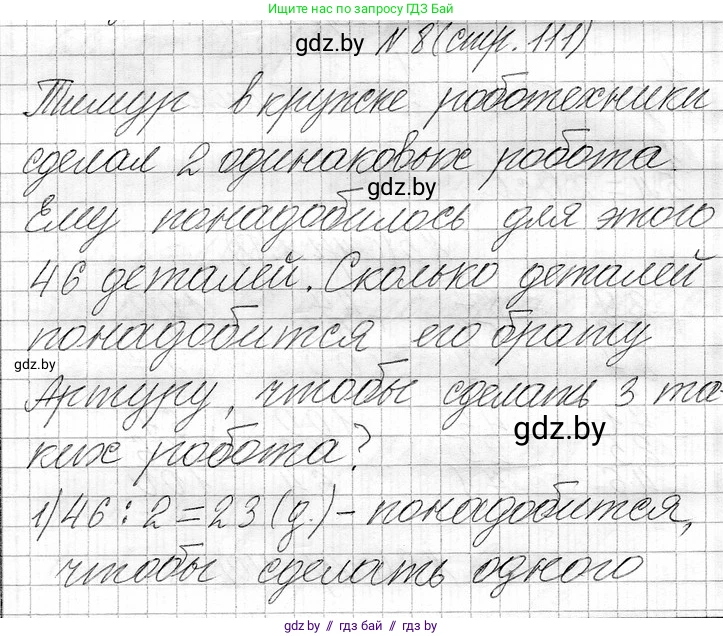 Ищите нас в поиске по запросу ГДЗ Бай
gdz.by № 8 (стр. 111)
Тимур в кружке робототехники
сделал 2 одинаковых робота.
gdz.by
Ему понадобилось для этого
46 деталей. Сколько деталей
понадобится его брату
gdz.by
Артуру, чтобы сделать 3 та-
gdz.by
ких робота?
1) 46 : 2 = 23 (д.) – понадобится,
чтобы сделать одного
gdz.by // гдз бай // гдз by